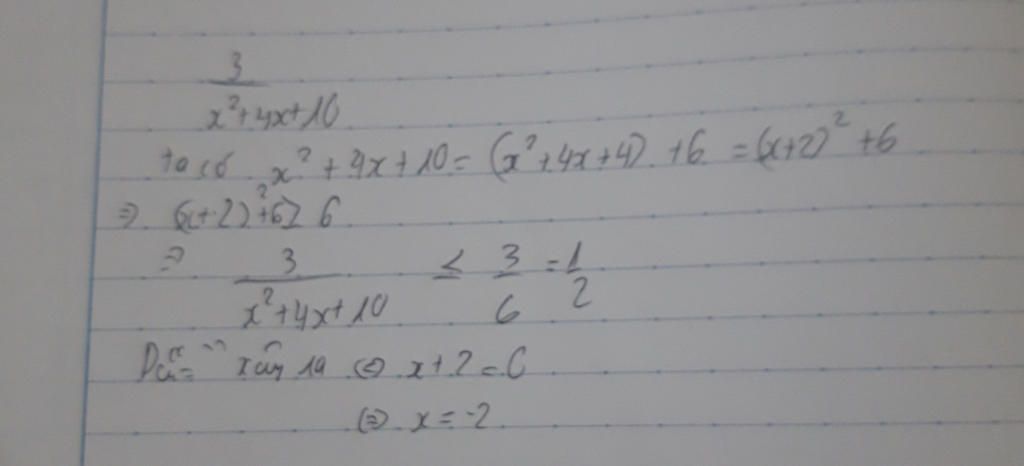 3
x²+4x+10
ta có x²+4x+10=(x²+4x+4)+6=(x+2)²+6
⇒ (x+2)²+6≥6
⇒ 3/(x²+4x+10) ≤ 3/6 = 1/2
Dấu "=" xảy ra ⇔ x+2=0
⇔ x=-2